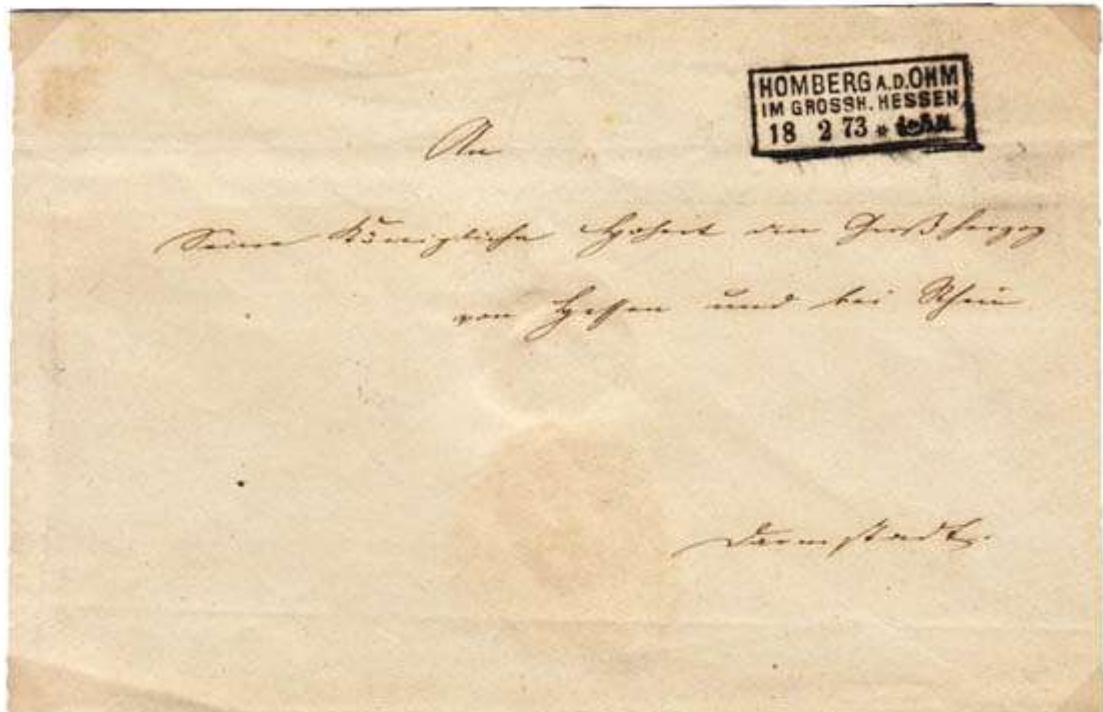 HOMBERG A.D.OHM
IM GROSSH. HESSEN
18 2 73 *
An
Seine Königliche Hoheit den Großherzog
von Hessen und bei Rhein
Darmstadt.